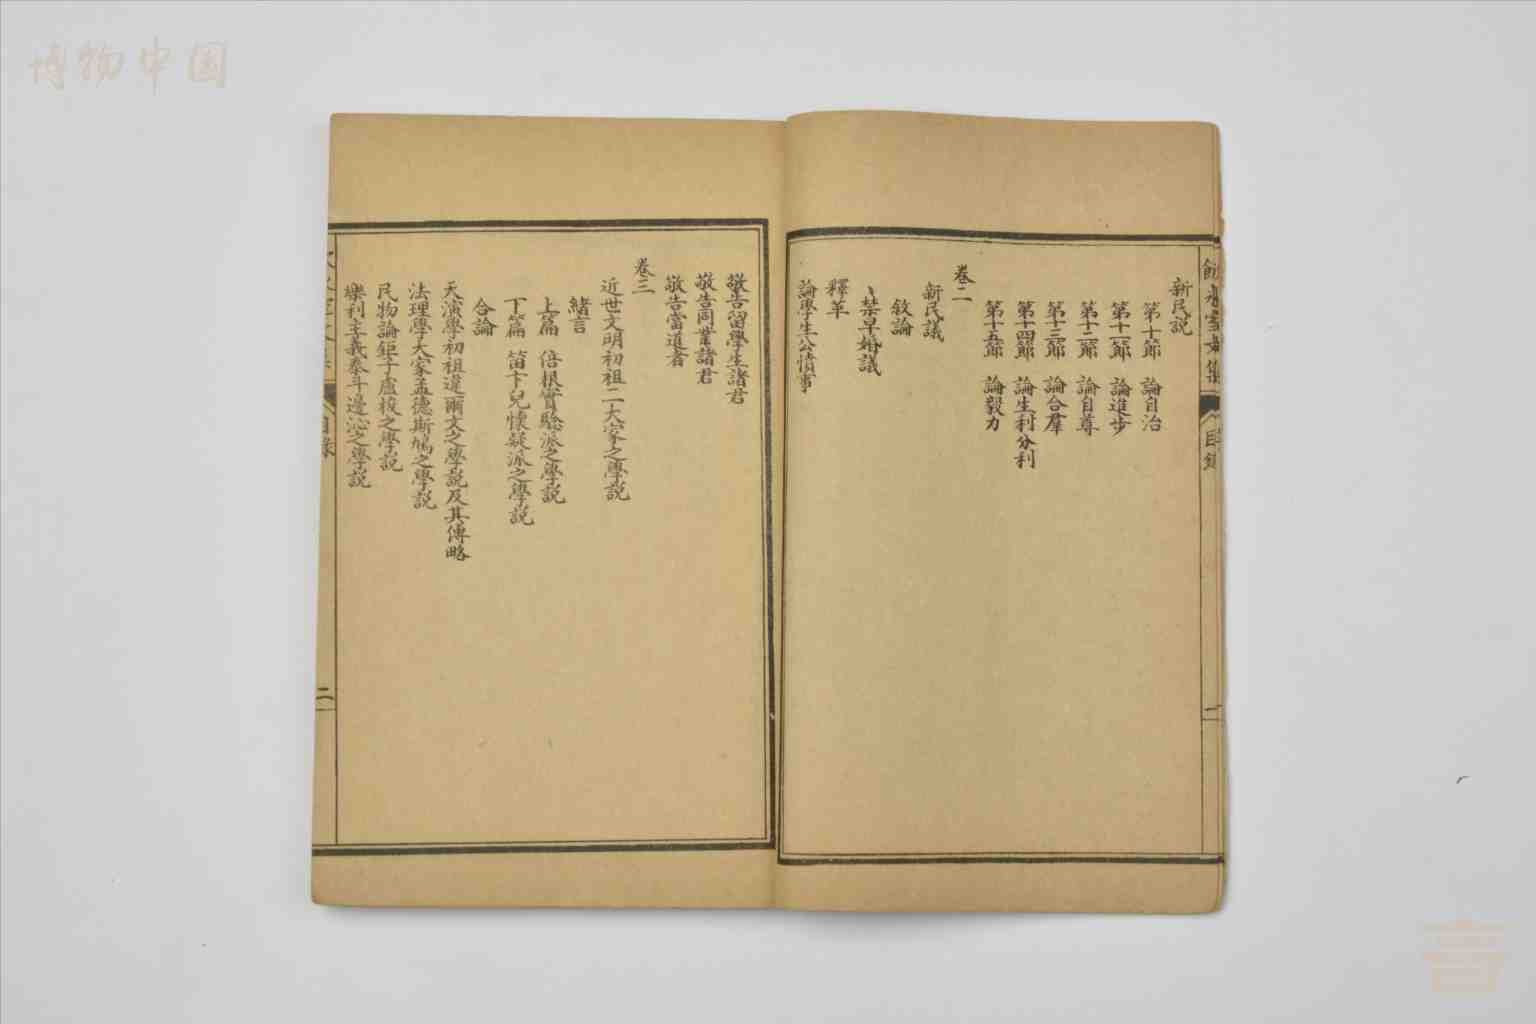 博物中国
飲冰室文集
目錄
一
新民説
第十節 論自治
第十一節 論進步
第十二節 論自尊
第十三節 論合羣
第十四節 論生利分利
第十五節 論毅力
卷二
新民議
敘論
禁早婚議
釋革
論學生公憤事
敬告留學生諸君
敬告同業諸君
敬告當道者
卷三
近世文明初祖二大家之學説
緒言
上篇 倍根實騐派之學説
下篇 笛卡兒懷疑派之學説
合論
天演學初祖達爾文之學説及其傳略
法理學大家孟德斯鳩之學説
民約論鉅子盧梭之學説
樂利主義泰斗邊沁之學説
目錄
二